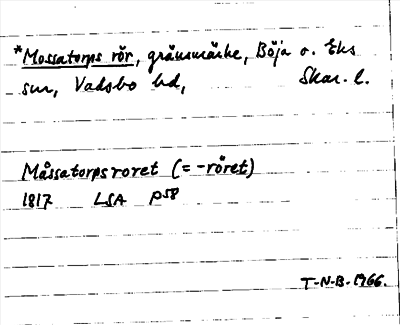 *Mossatorps rör, gränsmärke, Böja o. Eks
snr, Vadsbo hd, Skar. l.
Måssatorpsroret (= -röret)
1817 LSA P58
T-N-B-1966.